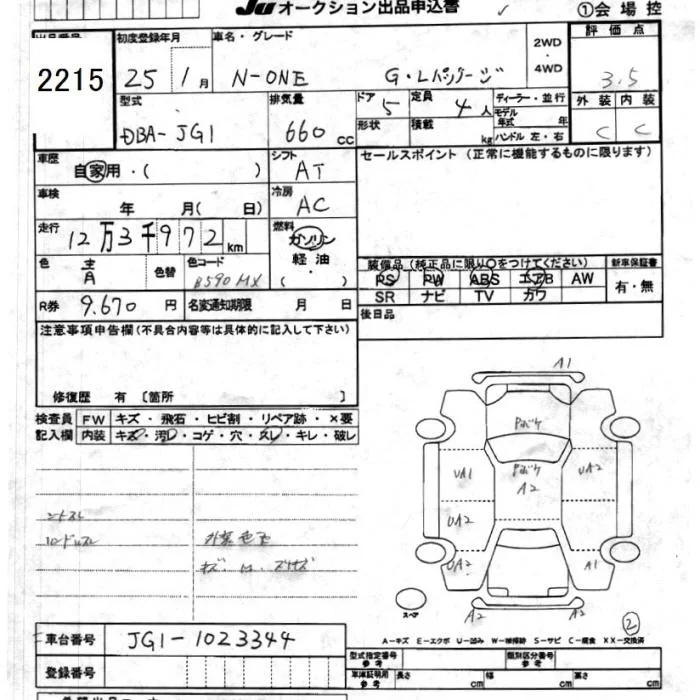 JU オークション出品申込書 ①会場控
出品番号 初度登録年月 車名・グレード 2WD 4WD 評価点
2215 25 1月 N-ONE G・Lパッケージ 3.5
型式 排気量 ドア 定員 ディーラー・並行 外装 内装
DBA-JG1 660 cc 5 4人 モデル年式 年 C C
形状 積載 kg ハンドル 左・右
車歴 自家用・( ) シフト AT セールスポイント (正常に機能するものに限ります)
車検 年 月( 日) 冷房 AC
走行 12万3千972km 燃料 ガソリン 軽油 ( )
色 色替 色コード B590MX 装備品(純正品に限り○をつけてください) 新車保証書
PS PW ABS エアB AW 有・無
SR ナビ TV カワ
R券 9.670円 名変通知期限 月 日 後日品
注意事項申告欄(不具合内容等は具体的に記入して下さい)
修復歴 有 〔箇所 〕
検査員記入欄 FW キズ・飛石・ヒビ割・リペア跡・×要
内装 キズ・汚レ・コゲ・穴・スレ・キレ・破レ
A1
UA1 A2 UA2
UA2
UA2 A1
A2 A2
スペア ②
A-キズ E-エクボ U-凹み W-補修跡 S-サビ C-腐食 XX-交換済
車台番号 JG1-1023344
型式指定番号 参考 類別区分番号 参考
登録番号 車庫証明用 参考 長さ cm 幅 cm 高さ cm